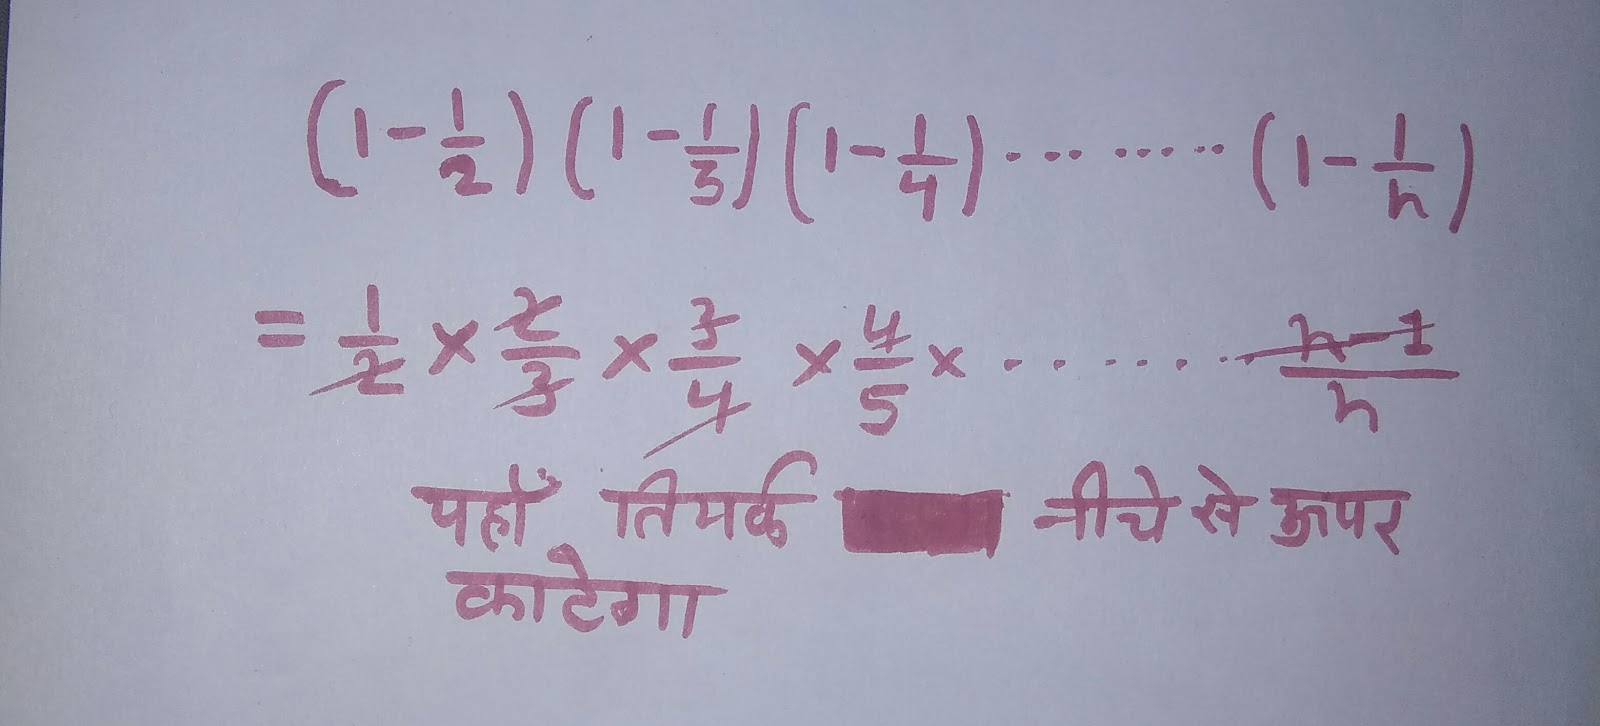 (1 - 1/2) (1 - 1/3) (1 - 1/4) ......... (1 - 1/n)
= 1/2 × 2/3 × 3/4 × 4/5 × ........ n-1/n
यहाँ तिर्यक नीचे से ऊपर
काटेगा